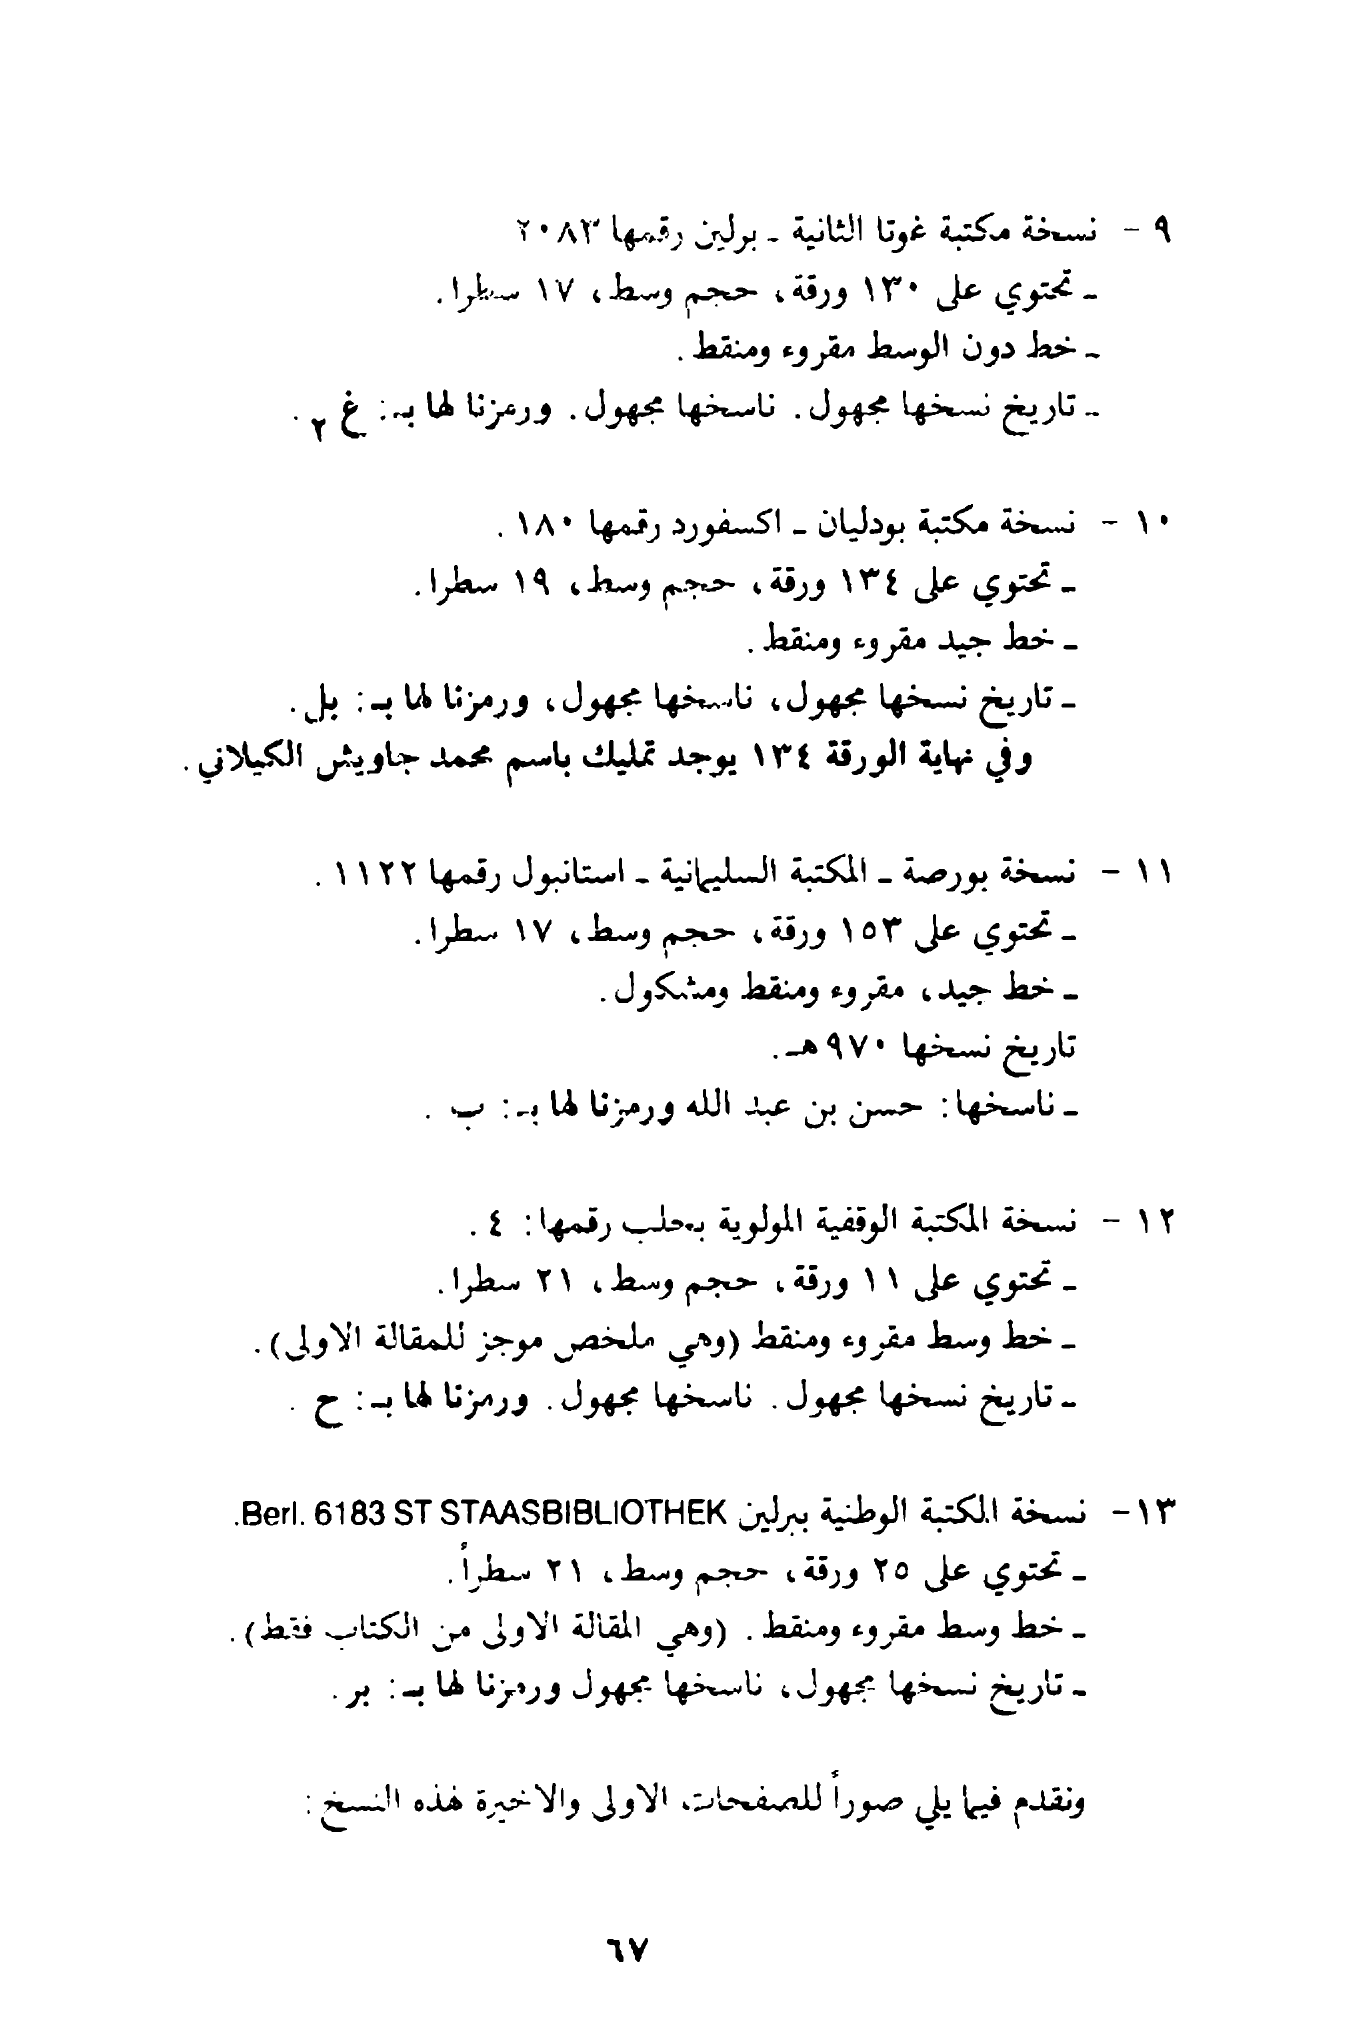 ٩ - نسخة مكتبة غوتا الثانية ـ برلين رقمها ٢٠٨٣
ـ تحتوي على ١٣٠ ورقة، حجم وسط، ١٧ سطرا.
ـ خط دون الوسط مقروء ومنقط.
ـ تاريخ نسخها مجهول. ناسخها مجهول. ورمزنا لها بـ: غ ٢.
١٠ - نسخة مكتبة بودليان ـ اكسفورد رقمها ١٨٠.
ـ تحتوي على ١٣٤ ورقة، حجم وسط، ١٩ سطرا.
ـ خط جيد مقروء ومنقط.
ـ تاريخ نسخها مجهول، ناسخها مجهول، ورمزنا لها بـ: بل.
وفي نهاية الورقة ١٣٤ يوجد تمليك باسم محمد جاويش الكيلاني.
١١ - نسخة بورصة ـ المكتبة السليمانية ـ استانبول رقمها ١١٢٢.
ـ تحتوي على ١٥٣ ورقة، حجم وسط، ١٧ سطرا.
ـ خط جيد، مقروء ومنقط ومشكول.
تاريخ نسخها ٩٧٠هـ.
ـ ناسخها: حسن بن عبد الله ورمزنا لها بـ: ب.
١٢ - نسخة المكتبة الوقفية المولوية بحلب رقمها: ٤.
ـ تحتوي على ١١ ورقة، حجم وسط، ٢١ سطرا.
ـ خط وسط مقروء ومنقط (وهي ملخص موجز للمقالة الاولى).
ـ تاريخ نسخها مجهول. ناسخها مجهول. ورمزنا لها بـ: ح.
١٣- نسخة المكتبة الوطنية ببرلين Berl. 6183 ST STAASBIBLIOTHEK.
ـ تحتوي على ٢٥ ورقة، حجم وسط، ٢١ سطراً.
ـ خط وسط مقروء ومنقط. (وهي المقالة الاولى من الكتاب فقط).
ـ تاريخ نسخها مجهول، ناسخها مجهول ورمزنا لها بـ: بر.
ونقدم فيما يلي صوراً للصفحات الاولى والاخيرة لهذه النسخ:
٦٧